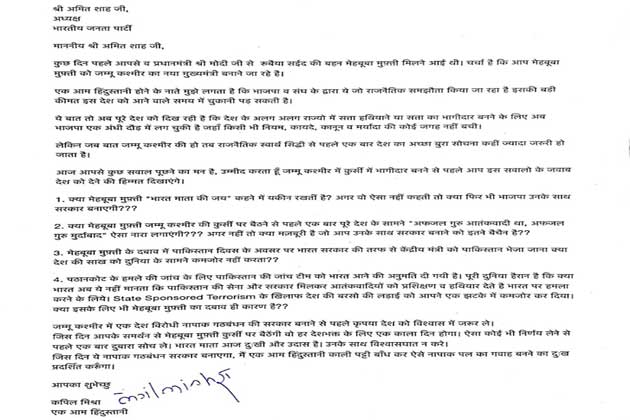 श्री अमित शाह जी,
अध्यक्ष
भारतीय जनता पार्टी
माननीय श्री अमित शाह जी,
कुछ दिन पहले आपसे व प्रधानमंत्री श्री मोदी जी से रुबैया सईद की बहन मेहबूबा मुफ़्ती मिलने आई थी। चर्चा है कि आप मेहबूबा
मुफ़्ती को जम्मू कश्मीर का नया मुख्यमंत्री बनाने जा रहे है।
एक आम हिंदुस्तानी होने के नाते मुझे लगता है कि भाजपा व संघ के द्वारा ये जो राजनैतिक समझौता किया जा रहा है इसकी बड़ी
कीमत इस देश को आने वाले समय में चुकानी पड़ सकती है।
ये बात तो अब पूरे देश को दिख रही है कि देश के अलग अलग राज्यो में सत्ता हथियाने या सत्ता का भागीदार बनने के लिए अब
भाजपा एक अंधी दौड़ में लग चुकी है जहाँ किसी भी नियम, कायदे, कानून व मर्यादा की कोई जगह नहीं बची।
लेकिन जब बात जम्मू कश्मीर की हो तब राजनैतिक स्वार्थ सिद्धी से पहले एक बार देश का अच्छा बुरा सोचना कहीं ज्यादा जरुरी हो
जाता है।
आज आपसे कुछ सवाल पूछने का मन है, उम्मीद करता हूँ जम्मू कश्मीर में कुर्सी में भागीदार बनने से पहले आप इस सवालो के जवाब
देश को देने की हिम्मत दिखाएंगे।
1. क्या मेहबूबा मुफ़्ती "भारत माता की जय" कहने में यकीन रखतीं है? अगर वो ऐसा नहीं कहती तो क्या फिर भी भाजपा उनके साथ
सरकार बनाएगी???
2. क्या मेहबूबा मुफ़्ती जम्मू कश्मीर की कुर्सी पर बैठने से पहले एक बार पूरे देश के सामने "अफजल गुरु आतंकवादी था, अफजल
गुरु मुर्दाबाद" ऐसा नारा लगाएंगी??? अगर नहीं तो क्या मजबूरी है जो आप उनके साथ सरकार बनाने को इतने बैचैन है??
3. मेहबूबा मुफ़्ती के दबाव में पाकिस्तान दिवस के अवसर पर भारत सरकार की तरफ से केंद्रिय मंत्री को पाकिस्तान भेजा जाना क्या
देश की साख को दुनिया के सामने कमजोर नहीं करता??
4. पठानकोट के हमले की जांच के लिए पाकिस्तान की जांच टीम को भारत आने की अनुमति दी गयी है। पूरी दुनिया हैरान है कि क्या
भारत अब ये नहीं मानता कि पाकिस्तान की सेना और सरकार मिलकर आतंकवादियों को प्रशिक्षण व हथियार देते है भारत पर हमला
करने के लिये। State Sponsored Terrorism के खिलाफ देश की बरसो की लड़ाई को आपने एक झटके में कमजोर कर दिया।
क्या इसके लिए भी मेहबूबा मुफ़्ती का दबाव ही कारण है??
जम्मू कश्मीर में एक देश विरोधी नापाक गठबंधन की सरकार बनाने से पहले कृपया देश को विश्वास में जरूर ले।
जिस दिन आपके समर्थन से मेहबूबा मुफ़्ती कुर्सी पर बैठेंगी वो हर देशभक्त के लिए एक काला दिन होगा। ऐसा कोई भी निर्णय लेने से
पहले एक बार दुबारा सोच ले। भारत माता आज दुःखी और उदास है। उनके साथ विश्वासघात न करे।
जिस दिन ये नापाक गठबंधन सरकार बनाएगा, मैं एक आम हिंदुस्तानी काली पट्टी बाँध कर ऐसे नापाक पल का गवाह बनने का दुःख
प्रदर्शित करूँगा।
आपका शुभेच्छु
कपिल मिश्रा
एक आम हिंदुस्तानी